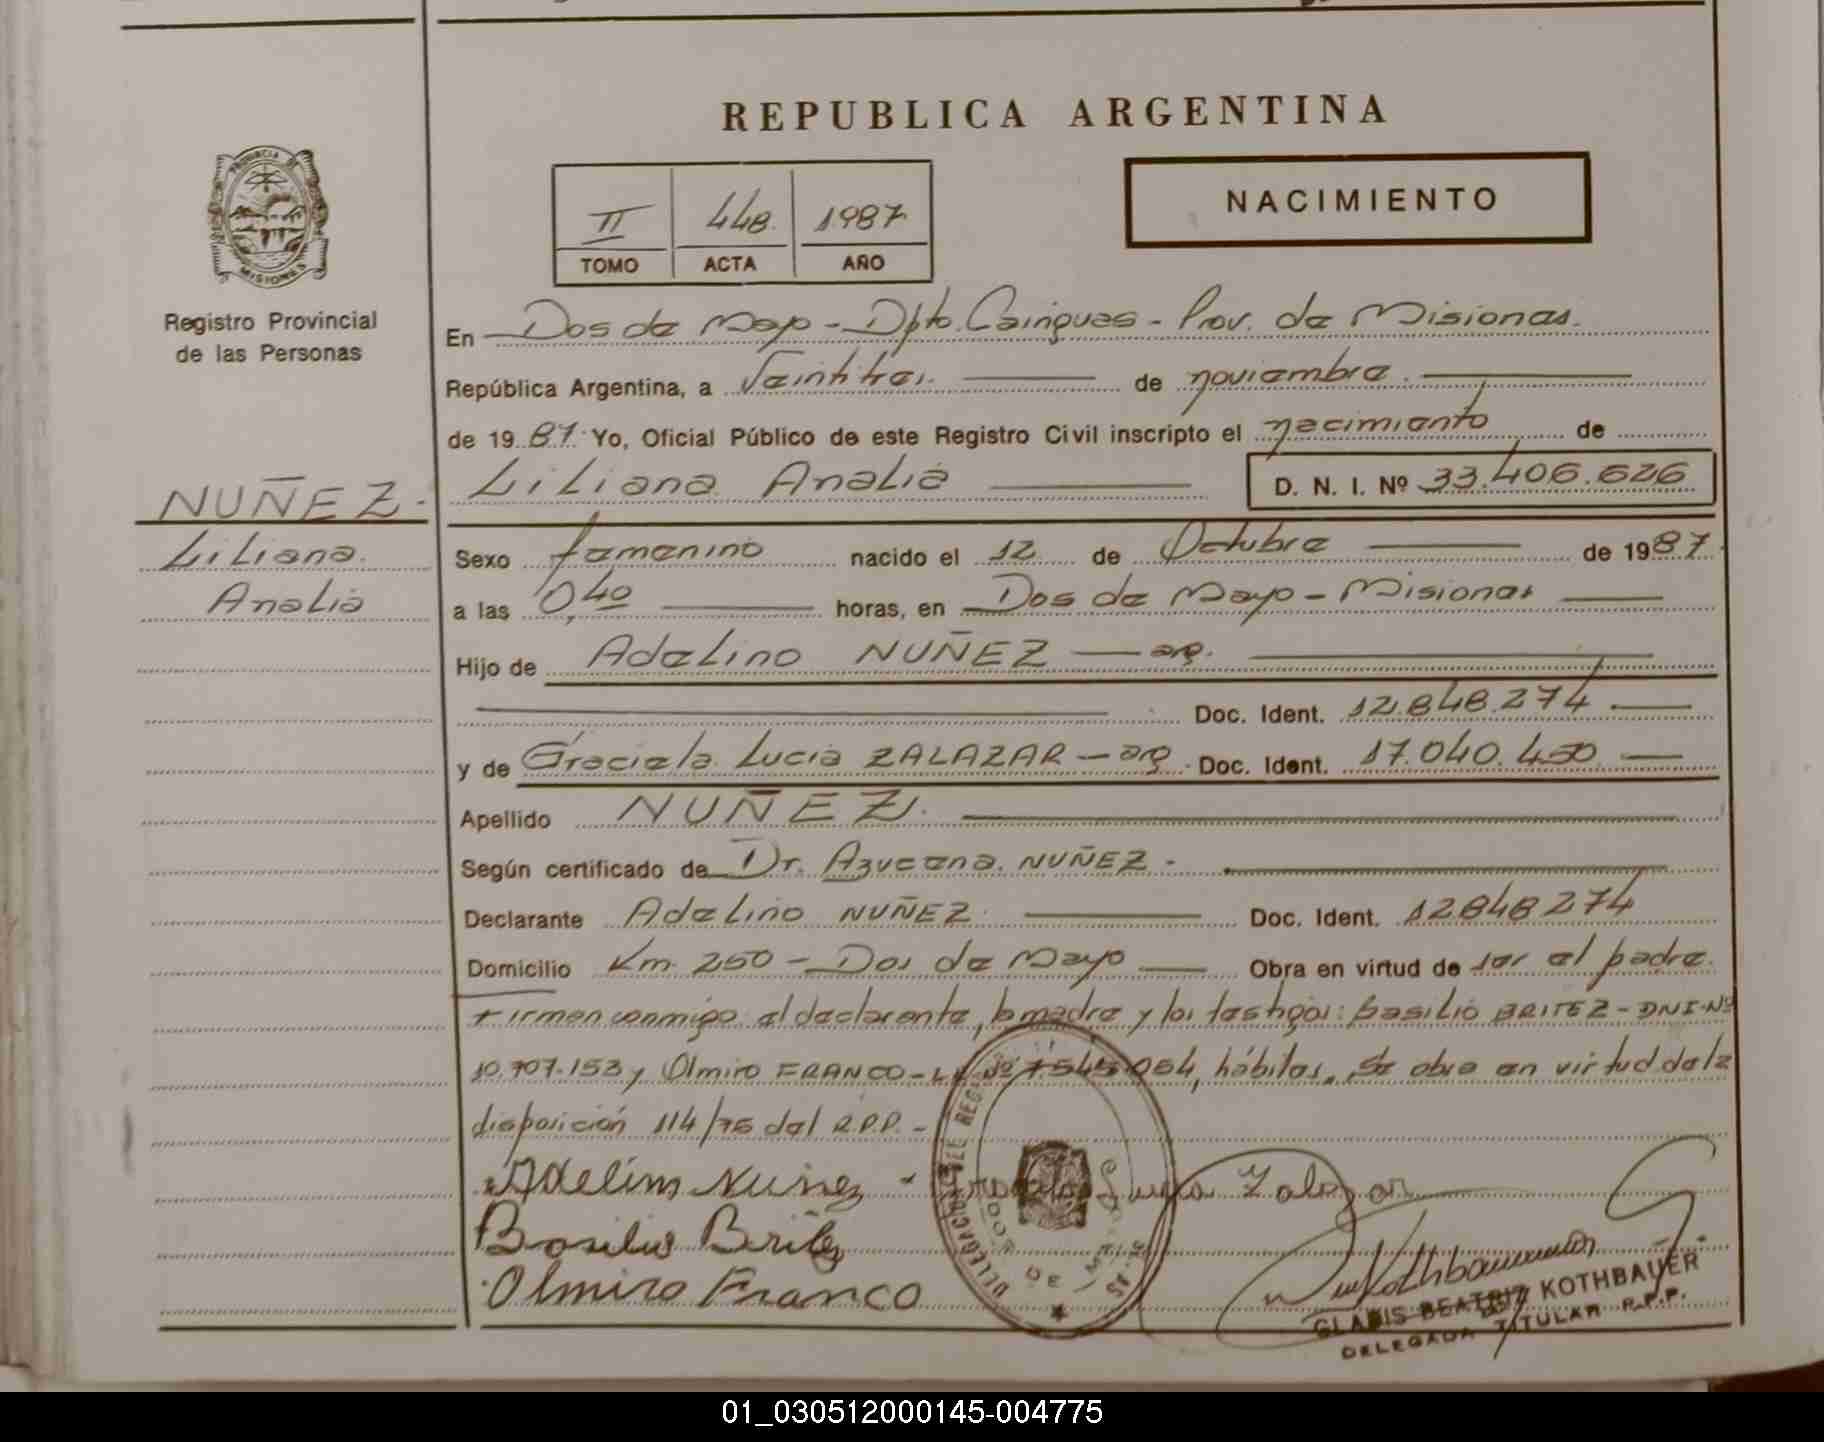 REPUBLICA ARGENTINA
PROVINCIA DE
MISIONES
Registro Provincial
de las Personas
II 448. 1987
TOMO ACTA AÑO
NACIMIENTO
En Dos de Mayo - Dpto. Cainguas - Prov. de Misiones.
República Argentina, a Veintitres. de noviembre.
de 1987. Yo, Oficial Público de este Registro Civil inscripto el nacimiento de
Liliana Analia D. N. I. Nº 33.406.626
NUÑEZ.
Liliana.
Analia
Sexo femenino nacido el 12 de Octubre de 1987.
a las 0,40 horas, en Dos de Mayo - Misiones
Hijo de Adelino NUÑEZ — arg.
Doc. Ident. 12.848.274
y de Graciela Lucia ZALAZAR — arg. Doc. Ident. 17.040.450
Apellido NUÑEZ.
Según certificado de Dr. Azucena NUÑEZ -
Declarante Adelino NUÑEZ Doc. Ident. 12848274
Domicilio Km. 250 - Dos de Mayo Obra en virtud de ser el padre.
Firman conmigo el declarante, la madre y los testigos: Basilio BRITEZ - DNI-Nº
10.707.153 y Olmiro FRANCO - Nº 7545.054, hábiles. Se obra en virtud de la
disposición 114/75 del R.P.P. -
Adelino Nuñez - Graciela Lucia Zalazar
Basilio Britez
Olmiro Franco
DOS DE MAYO
GLADIS BEATRIZ KOTHBAUER
DELEGADA TITULAR R.P.P.
01_030512000145-004775